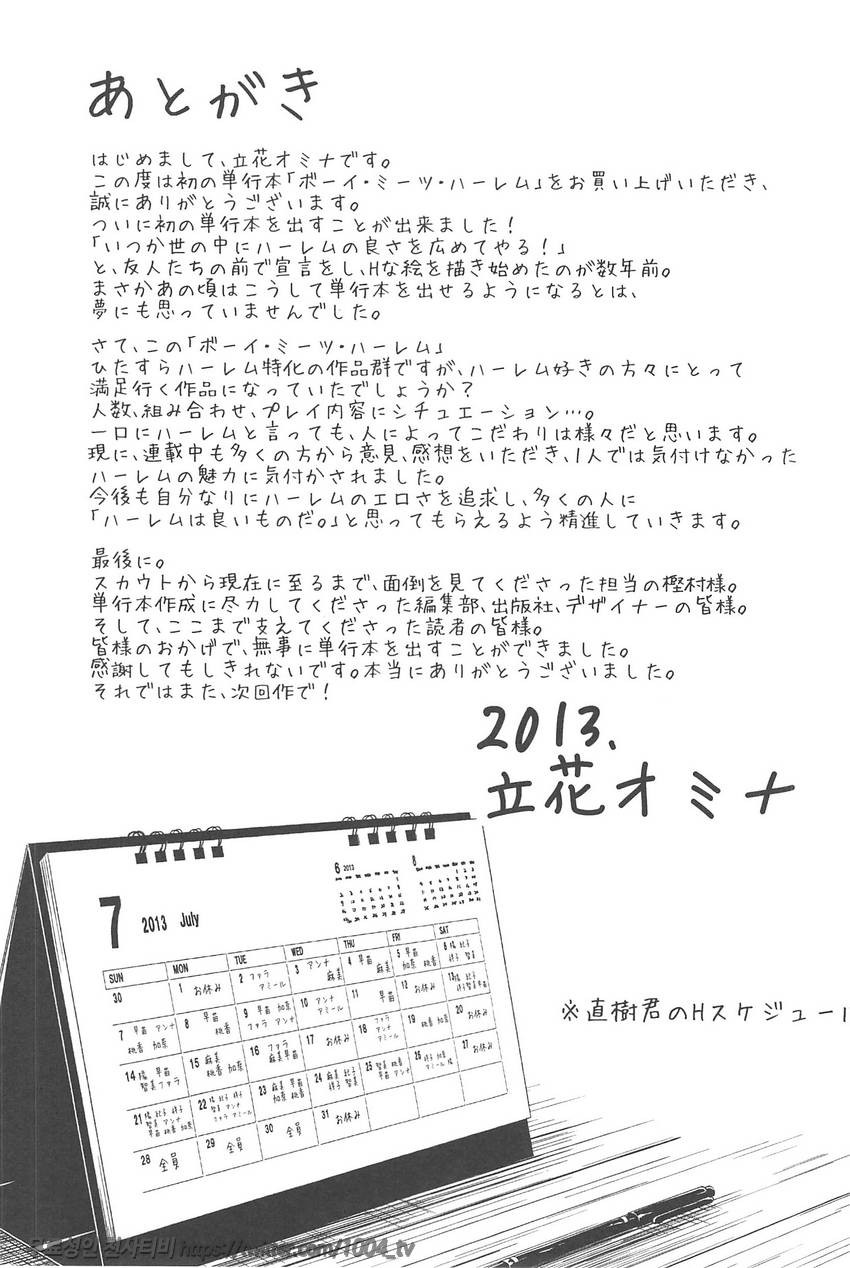 あとがき
はじめまして、立花オミナです。
この度は初の単行本「ボーイ・ミーツ・ハーレム」をお買い上げいただき、
誠にありがとうございます。
ついに初の単行本を出すことが出来ました！
「いつか世の中にハーレムの良さを広めてやる！」
と、友人たちの前で宣言をし、Hな絵を描き始めたのが数年前。
まさかあの頃はこうして単行本を出せるようになるとは、
夢にも思っていませんでした。
さて、この「ボーイ・ミーツ・ハーレム」
ひたすらハーレム特化の作品群ですが、ハーレム好きの方々にとって
満足行く作品になっていたでしょうか？
人数、組み合わせ、プレイ内容にシチュエーション…。
一口にハーレムと言っても、人によってこだわりは様々だと思います。
現に、連載中も多くの方から意見、感想をいただき、1人では気付けなかった
ハーレムの魅力に気付かされました。
今後も自分なりにハーレムのエロさを追求し、多くの人に
「ハーレムは良いものだ。」と思ってもらえるよう精進していきます。
最後に。
スカウトから現在に至るまで、面倒を見てくださった担当の樫村様。
単行本作成に尽力してくださった編集部、出版社、デザイナーの皆様。
そして、ここまで支えてくださった読者の皆様。
皆様のおかげで、無事に単行本を出すことができました。
感謝してもしきれないです。本当にありがとうございました。
それではまた、次回作で！
2013.
立花オミナ
6 2013
8
7 2013 July
SUN MON TUE WED THU FRI SAT
30 1 お休み 2 ファラ アミール 3 アンナ 麻美 4 早苗 麻美 5 早苗 加奈 桃香 6
7 早苗 アンナ 桃香 加奈 8 早苗 桃香 9 早苗 加奈 ファラ アンナ 10 アンナ アミール 11 早苗 12 お休み 13
14 智美 ファラ 15 麻美 桃香 加奈 16 ファラ 麻美 早苗 17 お休み 18 ファラ アンナ アミール 19 桃香 加奈 20 お休み
21 22 23 麻美 早苗 加奈 桃香 24 25 26 27 お休み
28 全員 29 全員 30 全員 31 お休み
※直樹君のHスケジュール
천사티비 https://twitter.com/1004_tv